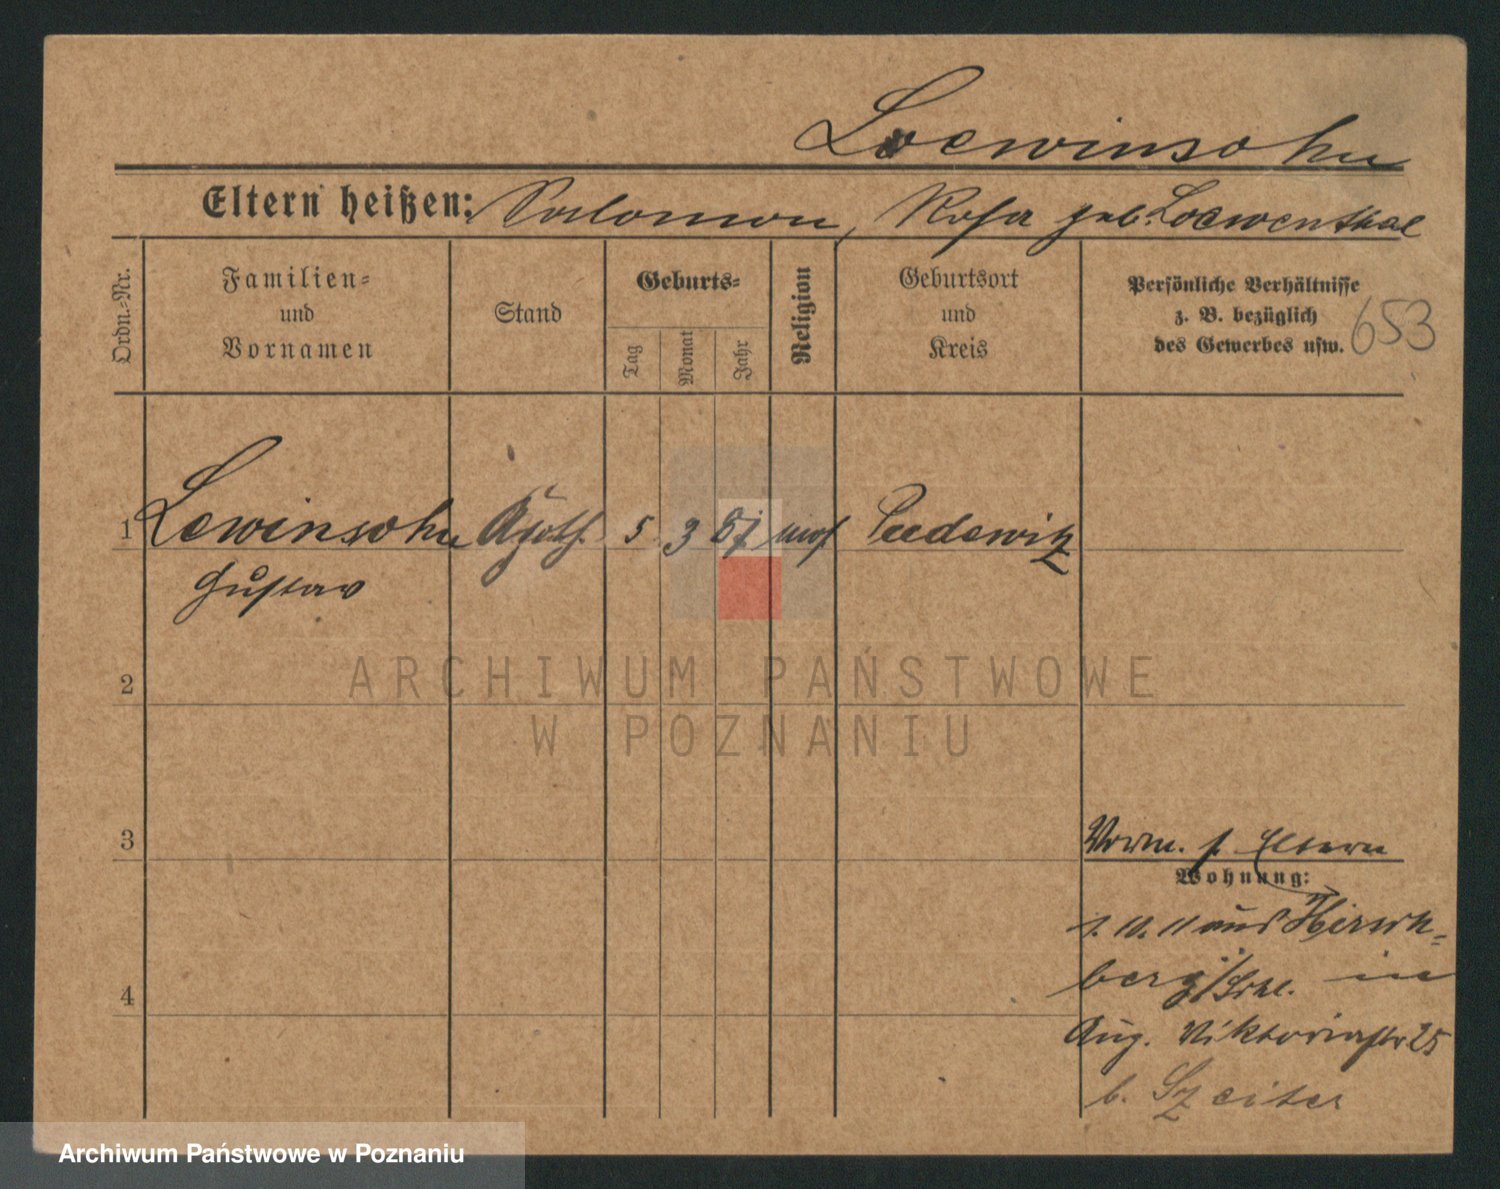 Loewinsohn
Eltern heißen: Salomon, Rosa geb. Loewenthal
Ordn.-Nr.
Familien-
und
Vornamen
Stand
Geburts-
Tag
Monat
Jahr
Religion
Geburtsort
und
Kreis
Persönliche Verhältnisse
z. B. bezüglich
des Gewerbes usw.
653
1 Lewinsohn Apoth. 5 3 87 mos. Pudewitz
Gustav
ARCHIWUM PAŃSTWOWE
W POZNANIU
2
3
Vorm. s. Eltern
Wohnung:
1. 10. 11 aus Hirsch-
berg/Schl. in
4
Aug. Viktoriastr 25
b. Szeiter
Archiwum Państwowe w Poznaniu